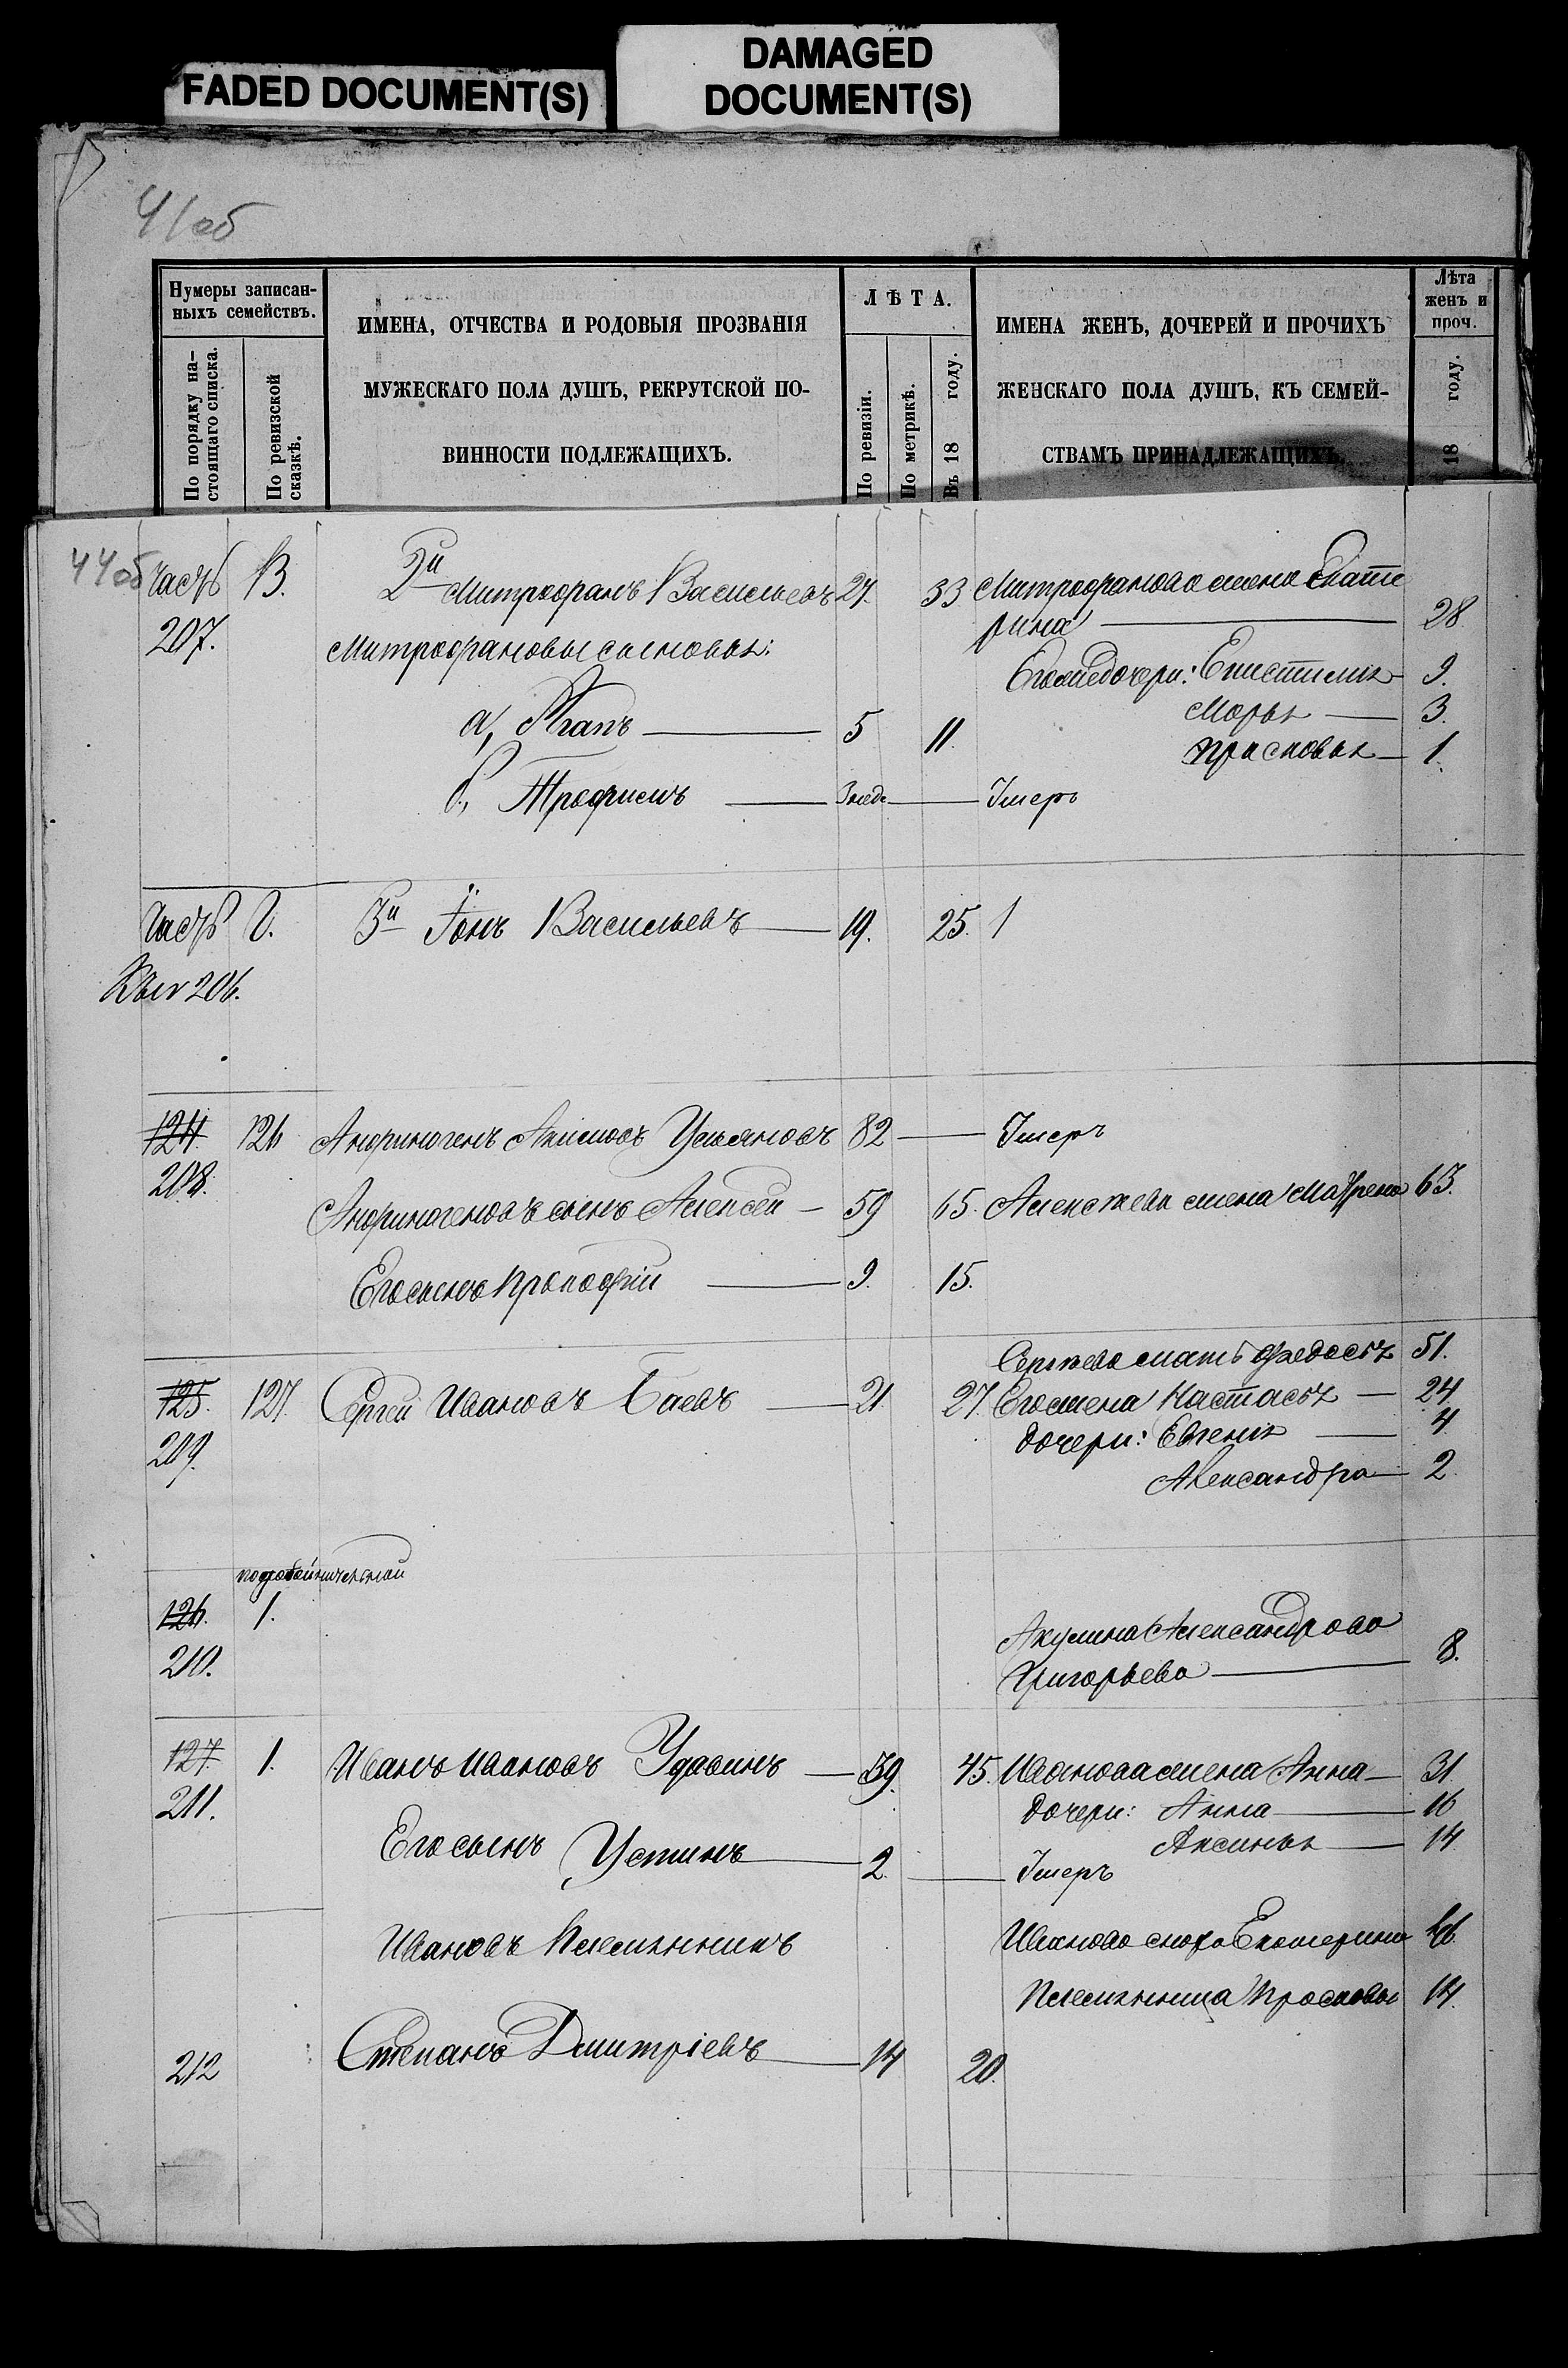 FADED DOCUMENT(S)
DAMAGED
DOCUMENT(S)
41об
Нумеры записан-
ныхъ семействъ.
По порядку на-
стоящаго списка.
По ревизской
сказкѣ.
ИМЕНА, ОТЧЕСТВА И РОДОВЫЯ ПРОЗВАНІЯ
МУЖЕСКАГО ПОЛА ДУШЪ, РЕКРУТСКОЙ ПО-
ВИННОСТИ ПОДЛЕЖАЩИХЪ.
ЛѢТА.
По ревизіи.
По метрикѣ.
Въ 18 году.
ИМЕНА ЖЕНЪ, ДОЧЕРЕЙ И ПРОЧИХЪ
ЖЕНСКАГО ПОЛА ДУШЪ, КЪ СЕМЕЙ-
СТВАМЪ ПРИНАДЛЕЖАЩИХЪ.
Лѣта
женъ и
проч.
18 году.
44об часть В. 2й Митрофанъ Васильевъ 27. 33 Митрофанова жена Екате
207. рина 28
Митрофановы сыновья:
Егоже дочери: Епистимья 9.
Марья 3.
а, Агапъ 5 11.
Прасковья 1.
б, Трофимъ 3 нед. Умеръ
Часть Г. 3й Іонъ Васильевъ 19. 25. 1
206.
124 126 Анфиногенъ Акимовъ Ульяновъ 82 Умеръ
208.
Анфиногеновъ сынъ Алексей 59 65. Алексѣева жена Матрена 63.
Его сынъ Прокофій 9. 15.
Сергѣева мать Федосья 51.
125. 127. Сергей Ивановъ Баевъ 21. 27. Его жена Настасья 24
209. дочери: Евгенія 4
Александра 2.
126. 1.
Акулина Александрова
210. Григорьева 8.
127. 1. Иванъ Ивановъ Удавинъ 39. 45. Иванова жена Анна 31.
211. дочери: Анна 16
Аксинья 14
Его сынъ Устинъ 2. Умеръ
Ивановъ племянникъ Иванова сноха Екатерина
племянница Прасковья 14.
212 Степанъ Дмитріевъ 14 20.